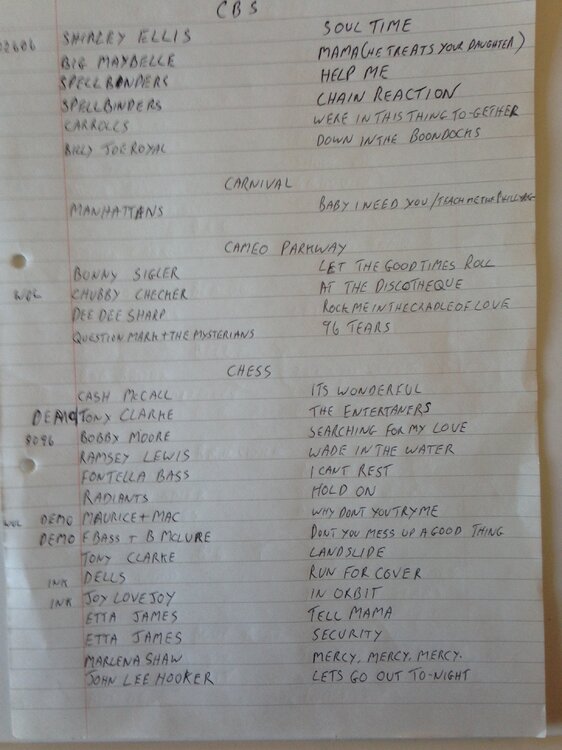 CBS
SHIRLEY ELLIS SOUL TIME
BIG MAYBELLE MAMA (HE TREATS YOUR DAUGHTER)
SPELLBINDERS HELP ME
SPELLBINDERS CHAIN REACTION
CARROLLS WERE IN THIS THING TO-GETHER
BILLY JOE ROYAL DOWN IN THE BOONDOCKS
CARNIVAL
MANHATTANS BABY I NEED YOU / TEACH ME THE
CAMEO PARKWAY
BUNNY SIGLER LET THE GOOD TIMES ROLL
WOL CHUBBY CHECKER AT THE DISCOTHEQUE
DEE DEE SHARP ROCK ME IN THE CRADLE OF LOVE
QUESTION MARK + THE MYSTERIANS 96 TEARS
CHESS
CASH MCCALL ITS WONDERFUL
DEMO TONY CLARKE THE ENTERTANERS
8096 BOBBY MOORE SEARCHING FOR MY LOVE
RAMSEY LEWIS WADE IN THE WATER
FONTELLA BASS I CANT REST
RADIANTS HOLD ON
WOL DEMO MAURICE + MAC WHY DONT YOU TRY ME
DEMO F BASS + B MCLURE DONT YOU MESS UP A GOOD THING
TONY CLARKE LANDSLIDE
INK DELLS RUN FOR COVER
INK JOY LOVEJOY IN ORBIT
ETTA JAMES TELL MAMA
ETTA JAMES SECURITY
MARLENA SHAW MERCY, MERCY, MERCY.
JOHN LEE HOOKER LETS GO OUT TO-NIGHT